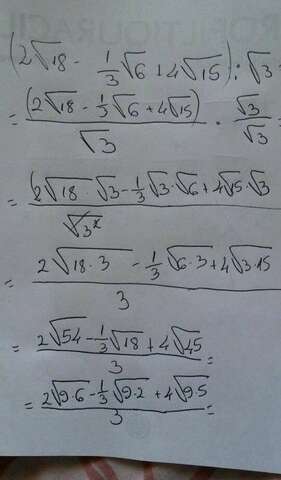 (2√18 - 1/3 √6 + 4√15) : √3 =
= (2√18 - 1/3 √6 + 4√15) / √3 · √3 / √3 =
= (2√18 · √3 - 1/3 √3 · √6 + 4√15 · √3 / √3²
= 2√18·3 - 1/3 √6·3 + 4√3·15 / 3
= 2√54 - 1/3 √18 + 4√45 / 3 =
= 2√9·6 - 1/3 √9·2 + 4√9·5 / 3 =